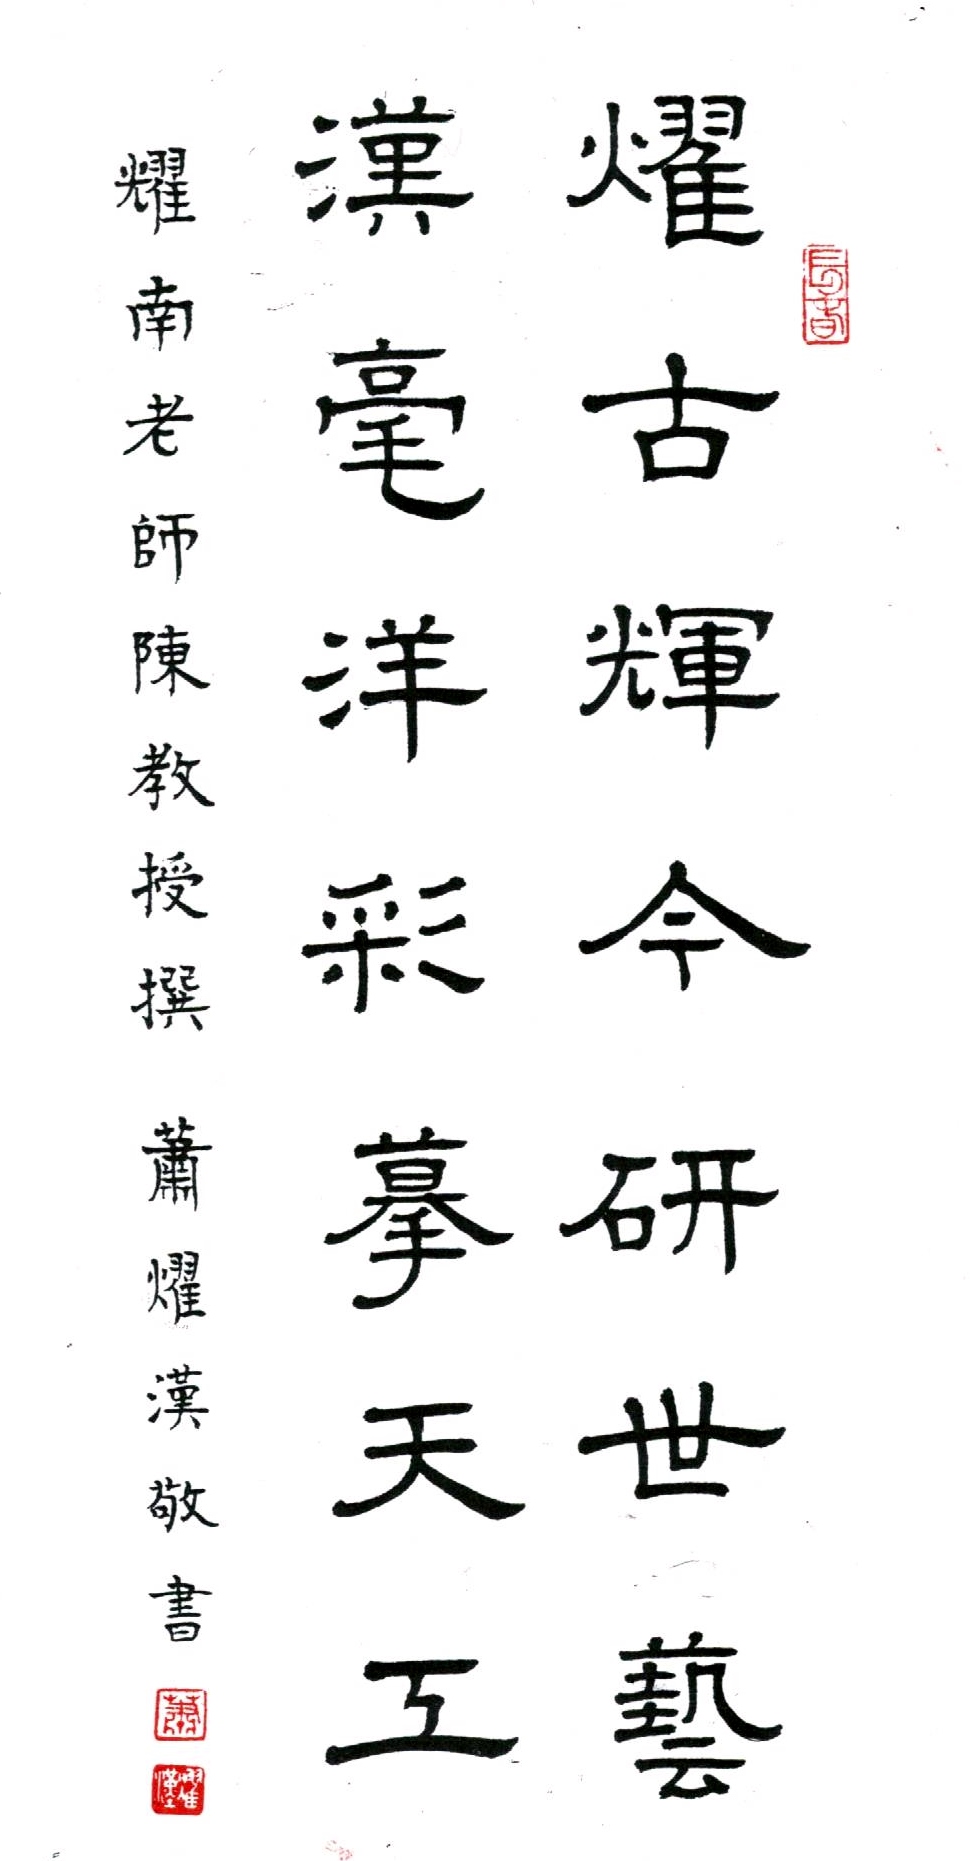 燿古輝今研世藝
漢毫洋彩摹天工
耀南老師陳教授撰 蕭燿漢敬書
蕭
燿漢